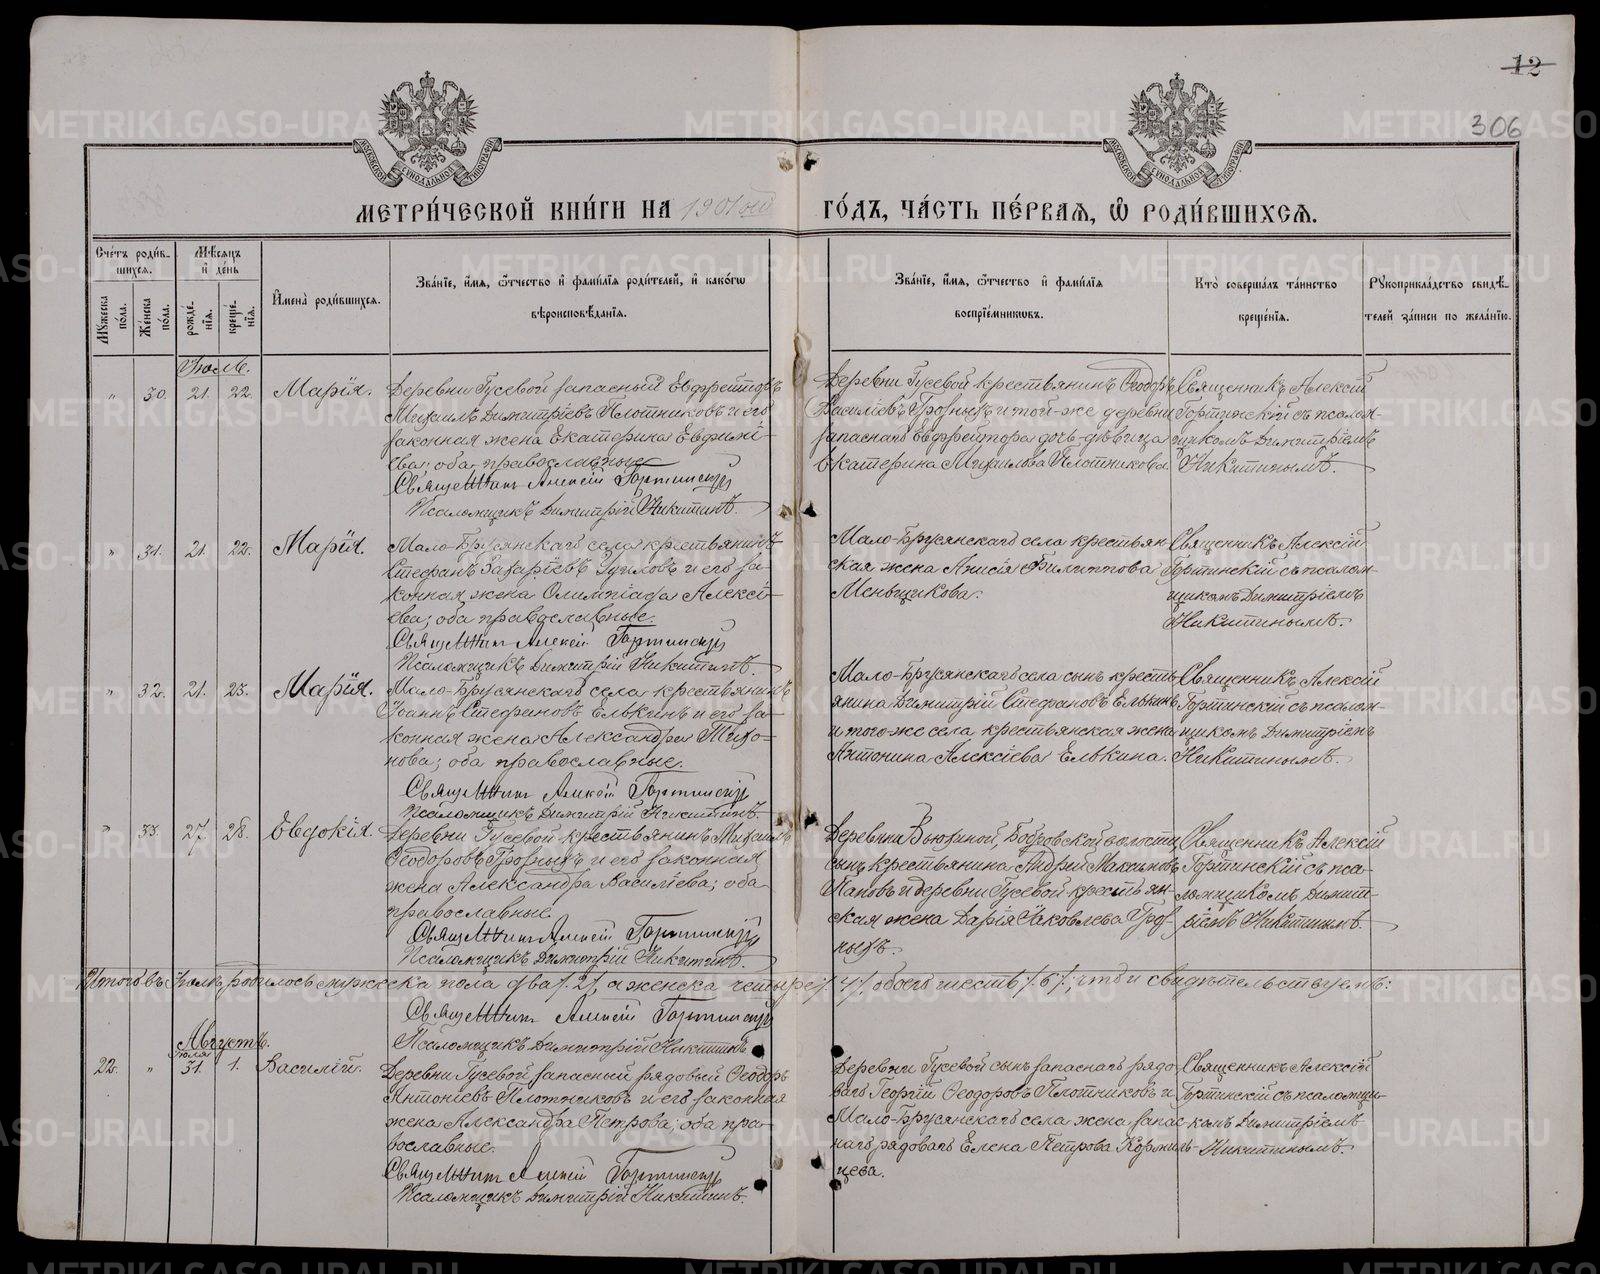 12
306
МОСКОВСКОЙ СѴНОДАЛЬНОЙ ТИПОГРАФІИ
МОСКОВСКОЙ СѴНОДАЛЬНОЙ ТИПОГРАФІИ
МЕТРИ́ЧЕСКОЙ КНИ́ГИ НА 1901ый ГО́ДЪ, ЧА́СТЬ ПЕ́РВАЯ, Ѡ҆ РОДИ́ВШИХСЯ.
Сче́тъ роди́в-
шихся.
Мѣ́сяцъ
и҆ день
Мꙋ́жеска по́ла.
Же́нска по́ла.
рожде́-
нїя.
креще́-
нїя.
И҆мена̀ роди́вшихся.
Зва́нїе, и҆́мя, ѻ҆́тчество и҆ фами́лїя роди́телей, и҆ како́гѡ
вѣроисповѣ́данїя.
Зва́нїе, и҆́мя, ѻ҆́тчество и҆ фами́лїя
воспрїе́мникѡвъ.
Кто̀ соверша́лъ та́инство
креще́нїя.
Рꙋкоприкла́дство свидѣ́-
телей за́писи по жела́нїю.
Іюль.
" 30. 21. 22. Марія.
Деревни Гусевой запасный Ефрейторъ
Михаилъ Димитріевъ Плотниковъ и его
законная жена Екатерина Евфимі-
ева; оба православные
Священникъ Алексій Гортинскій
Псаломщикъ Димитрій Никитинъ.
Деревни Гусевой крестьянинъ Ѳеодоръ
Василіевъ Грозныхъ и той-же деревни
запаснаго Ефрейтора дочь-дѣвица
Екатерина Михаилова Плотникова.
Священникъ Алексій
Гортинскій съ псалом-
щикомъ Димитріемъ
Никитинымъ.
" 31. 21. 22. Марія.
Мало-Брусянскаго села крестьянинъ
Стефанъ Захаріевъ и его за-
конная жена Олимпіада Алексі-
ева; оба православные.
Священникъ Алексій Гортинскій
Псаломщикъ Димитрій Никитинъ.
Мало-Брусянскаго села крестьян-
ская жена Анисія Филиппова
Меньщикова.
Священникъ Алексій
Гортинскій съ псалом-
щикомъ Димитріемъ
Никитинымъ.
" 32. 21. 23. Марія.
Мало-Брусянскаго села крестьянинъ
Іоаннъ Стефановъ Елькинъ и его за-
конная жена Александра Тихо-
нова; оба православные.
Священникъ Алексій Гортинскій
Псаломщикъ Димитрій Никитинъ.
Мало-Брусянскаго села сынъ кресть-
янина Димитрій Стефановъ Елькинъ
и того-же села крестьянская жена
Антонина Алексіева Елькина.
Священникъ Алексій
Гортинскій съ псалом-
щикомъ Димитріемъ
Никитинымъ.
" 33. 27. 28. Евдокія.
Деревни Гусевой крестьянинъ Михаилъ
Ѳеодоровъ Грозныхъ и его законная
жена Александра Василіева; оба
православные.
Священникъ Алексій Гортинскій
Псаломщикъ Димитрій Никитинъ.
Деревни Вьюхиной, Бобровской волости
сынъ крестьянина Андрей Максимовъ
Паповъ и деревни Гусевой крестьян-
ская жена Дарія Іаковлева Гроз-
ныхъ.
Священникъ Алексій
Гортинскій съ пса-
ломщикомъ Димит-
ріемъ Никитинымъ.
Итого въ Іюлѣ родилось мужеска пола два /2/, а женска четыре /4/, обоего шесть /6/, что и свидѣтельствуемъ:
Священникъ Алексій Гортинскій
Псаломщикъ Димитрій Никитинъ
Августъ.
Іюля
22. " 31. 1. Василій.
Деревни Гусевой запасный рядовый Ѳеодоръ
Антоніевъ Плотниковъ и его законная
жена Александра Петрова; оба пра-
вославные.
Священникъ Алексій Гортинскій
Псаломщикъ Димитрій Никитинъ.
Деревни Гусевой сынъ запаснаго рядо-
ваго Георгій Ѳеодоровъ Плотниковъ и
Мало-Брусянскаго села жена запас-
наго рядоваго Елена Петрова Кормиль-
цева.
Священникъ Алексій
Гортинскій съ псаломщи-
комъ Димитріемъ
Никитинымъ.
METRIKI.GASO-URAL.RU